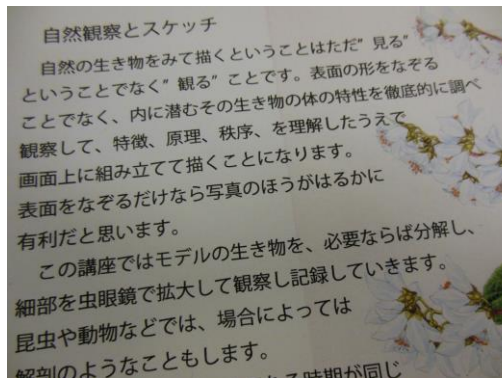 自然観察とスケッチ
自然の生き物をみて描くということはただ”見る”
ということでなく”観る”ことです。表面の形をなぞる
ことでなく、内に潜むその生き物の体の特性を徹底的に調べ
観察して、特徴、原理、秩序、を理解したうえで
画面上に組み立てて描くことになります。
表面をなぞるだけなら写真のほうがはるかに
有利だと思います。
この講座ではモデルの生き物を、必要ならば分解し、
細部を虫眼鏡で拡大して観察し記録していきます。
昆虫や動物などでは、場合によっては
解剖のようなこともします。
る時期が同じ